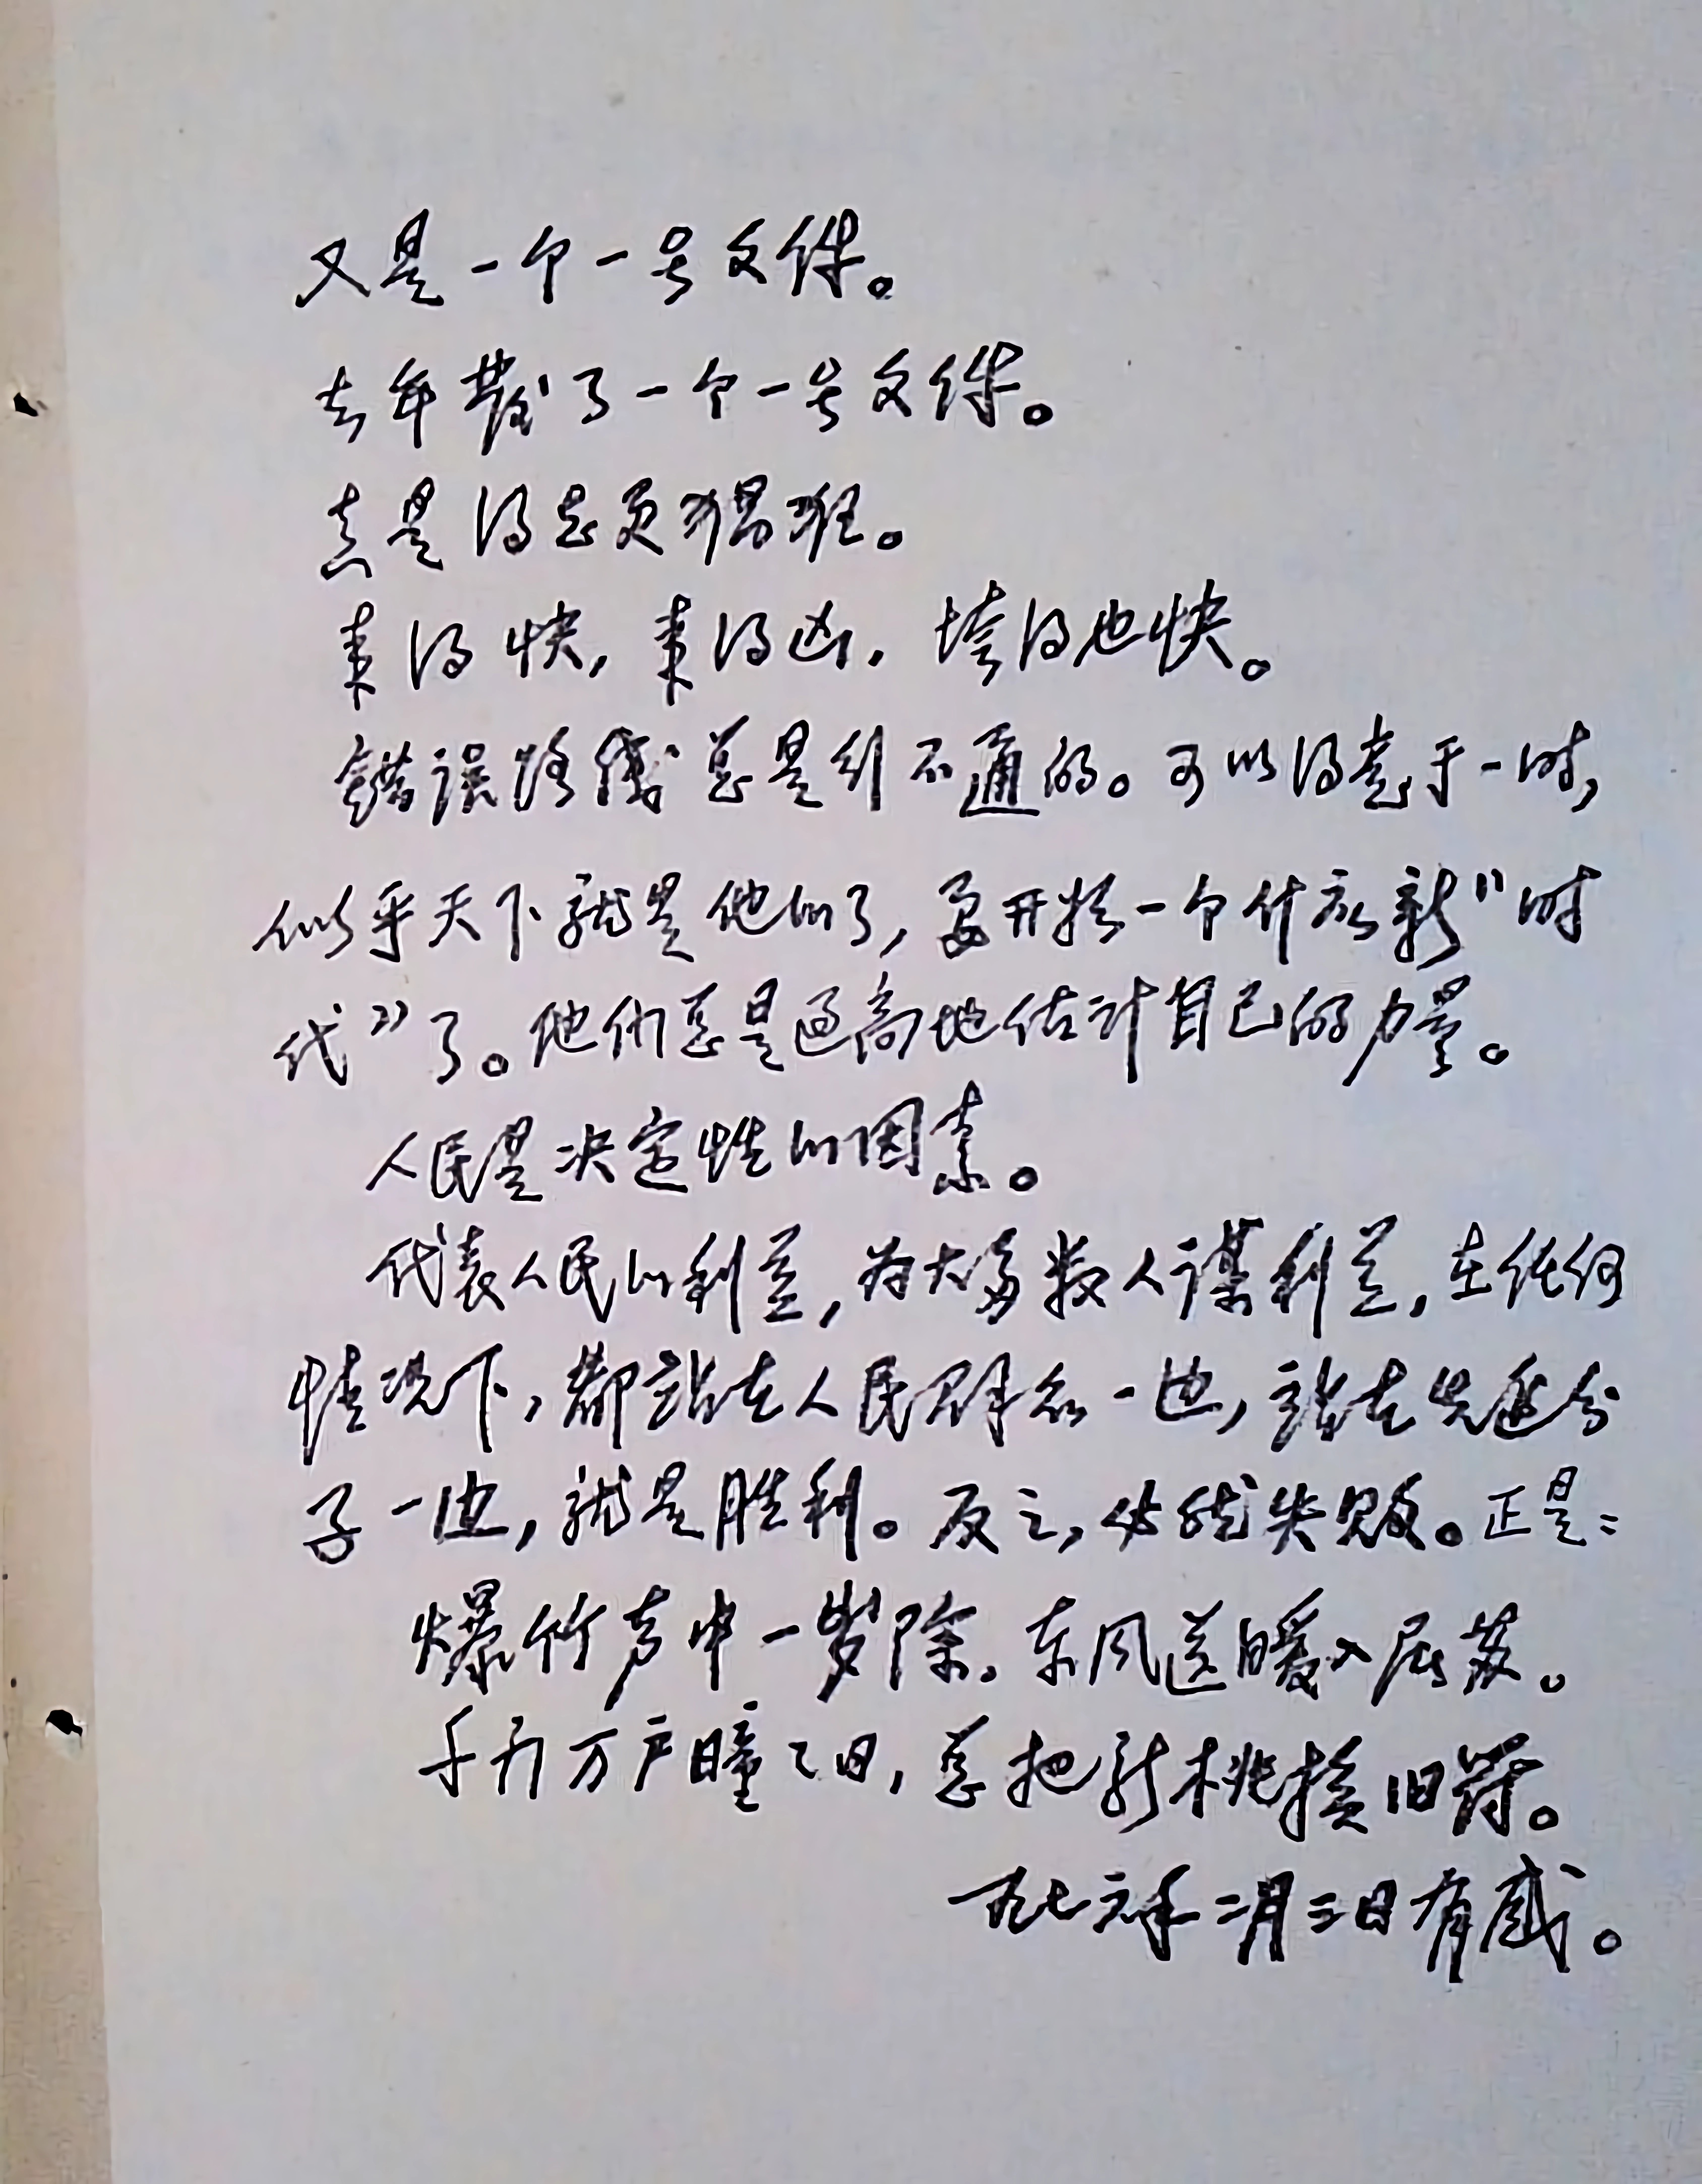 又是一个一号文件。
去年发了一个一号文件。
真是得志更猖狂。
来得快，来得凶，垮得也快。
错误路线总是行不通的。可以得意于一时，
似乎天下就是他们了，要开始一个什么新“时
代”了。他们总是过高地估计自己的力量。
人民是决定性的因素。
代表人民的利益，为大多数人谋利益，在任何
情况下，都站在人民群众一边，站在先进分
子一边，就是胜利。反之，必然失败。正是：
爆竹声中一岁除，东风送暖入屠苏。
千门万户曈曈日，总把新桃换旧符。
一九七六年二月三日有感。